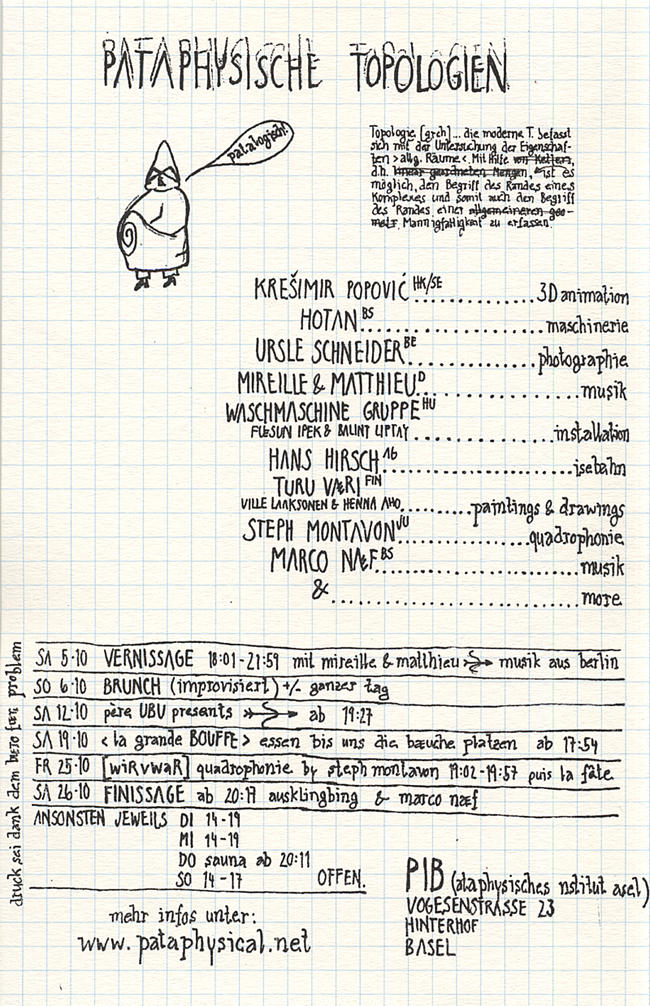 PATAPHYSISCHE TOPOLOGIEN
patalogisch!
Topologie [grch]... die moderne T. befasst
sich mit der Untersuchung der Eigenschaf-
ten >allg. Räume<. Mit Hilfe von Ketten,
d.h. linear geordneten Mengen, ist es
möglich, den Begriff des Randes eines
Komplexes und somit auch den Begriff
des Randes einer allgemeineren geo-
metr. Mannigfaltigkeit zu erfassen.
KREŠIMIR POPOVIĆ HK/SE ............ 3D animation
HOTAN BS ............ maschinerie
URSLE SCHNEIDER BE ............ photographie
MIREILLE & MATTHIEU D ............ musik
WASCHMASCHINE GRUPPE HU
FUESUN IPEK & BALINT LIPTAY ............ installation
HANS HIRSCH AG ............ isebahn
TURU VÆRI FIN
VILLE LAAKSONEN & HENNA AHO ............ paintings & drawings
STEPH MONTAVON JU ............ quadrophonie
MARCO NÆF BS ............ musik
& ............ more
SA 5·10 VERNISSAGE 18:01-21:59 mit mireille & matthieu musik aus berlin
SO 6·10 BRUNCH (improvisiert) +/- ganzer tag
SA 12·10 père UBU presents ab 19:27
SA 19·10 <la grande BOUFFE> essen bis uns die bæuche platzen ab 17:54
FR 25·10 [wiRvwaR] quadrophonie by steph montavon 19:02-19:57 puis la fête
SA 26·10 FINISSAGE ab 20:17 ausklingbing & marco næf
ANSONSTEN JEWEILS DI 14-19
MI 14-19
DO sauna ab 20:11
SO 14-17 OFFEN.
druck sei dank dem bero fuer problem
mehr infos unter:
www.pataphysical.net
PIB (ataphysisches nstitut asel)
VOGESENSTRASSE 23
HINTERHOF
BASEL